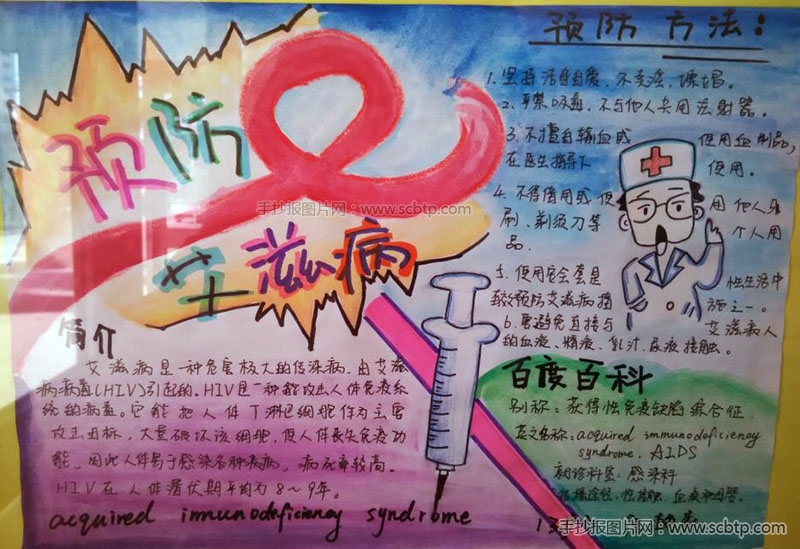 预防
艾滋病
手抄报图片网：www.scbtp.com
简介
艾滋病是一种危害极大的传染病,由艾滋
病病毒(HIV)引起的.HIV是一种能攻击人体免疫系
统的病毒。它能把人体T淋巴细胞作为主要
攻击目标，大量破坏该细胞，使人体丧失免疫功
能。因此人体易于感染各种疾病，病死率较高。
HIV在人体潜伏期平均为8～9年。
acquired immunodeficiency syndrome
预防方法：
1. 坚持洁身自爱，不
2、严禁吸毒，不与他人共用注射器。
3.不擅自输血或 使用血制品,
在医生指导下 使用.
4. 不得借用或 使用他人牙
刷、剃须刀等 个人用
品.
5. 使用安全套是 性生活中
预防艾滋病 措施之一。
6. 要避免直接与 艾滋病人
的血液、精液、乳汁、尿液接触。
百度百科
别称：获得性免疫缺陷综合征
英文名称：acquired immunodeficiency
syndrome, AIDS
就诊科室：感染科
传播途径：性接触、血液和母婴
手抄报图片网：www.scbtp.com